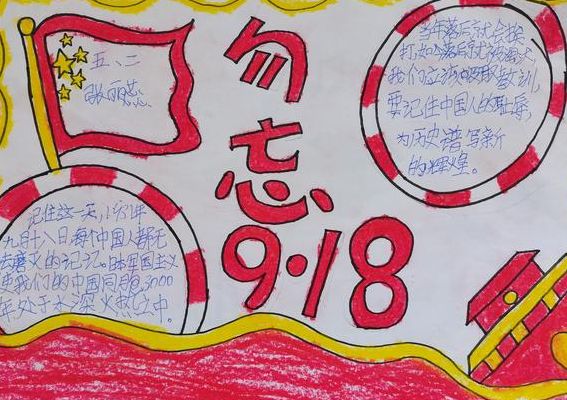 五、二
张丽蕊
勿
忘
9·18
当年落后就会挨
打,如今落后就被
我们应汲取教训,
要记住中国人的耻辱,
为历史谱写新
的辉煌。
记住这一天,1931年
九月十八日每个中国人都无
法磨灭的记记。日本军国主义
使我们的中国同胞3000
年处于水深火热之中。